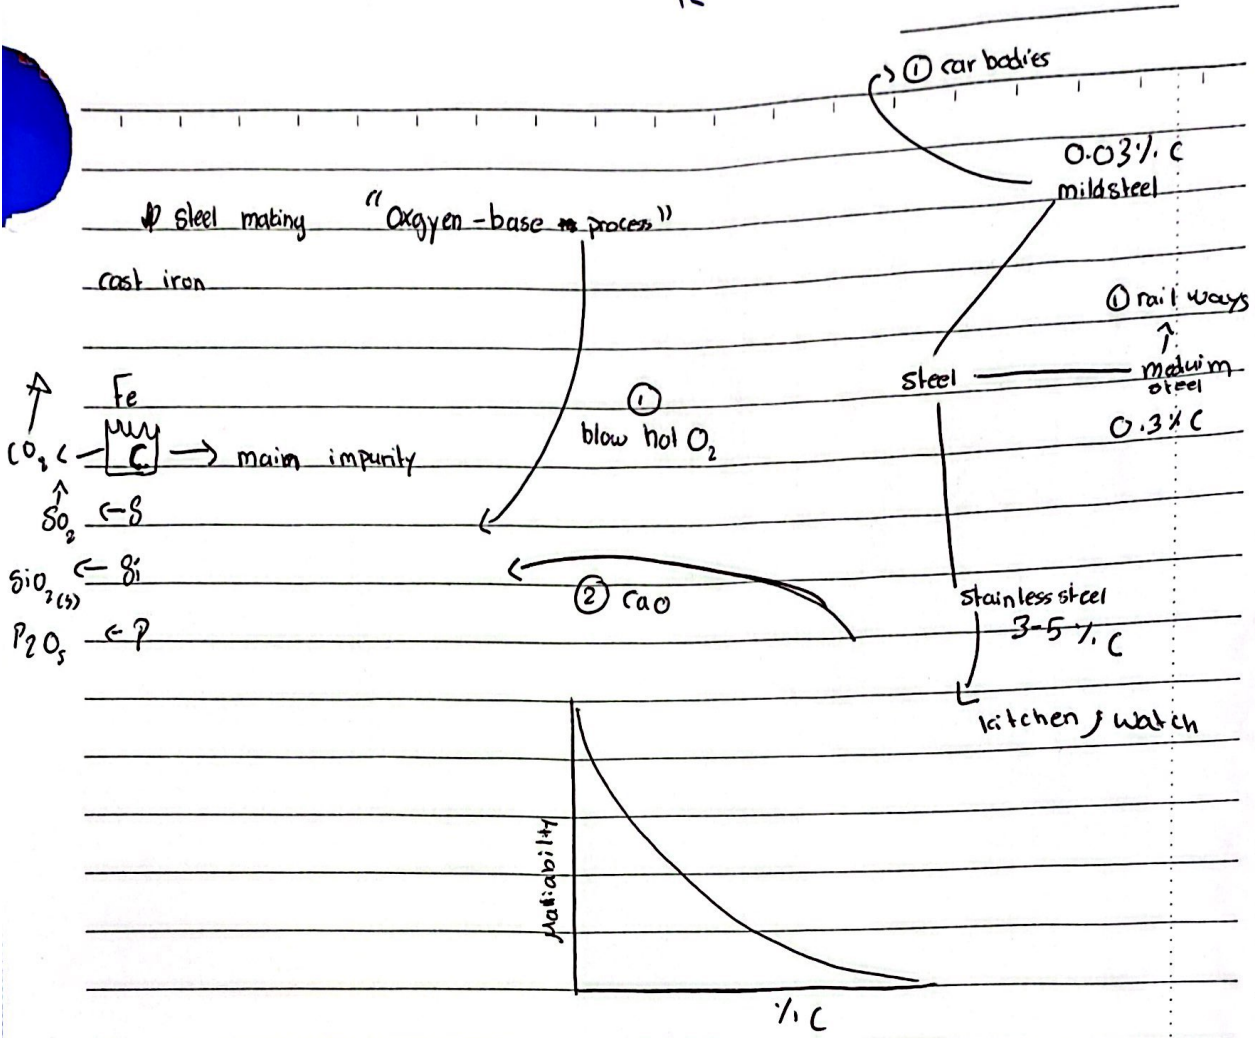 ① car bodies
0.03% C
mild steel
steel making "Oxgyen-base process"
cast iron
① rail ways
steel
meduim
steel
0.3% C
Fe
①
blow hot O₂
CO₂ C
C → main impurity
SO₂ ← S
SiO₂(s) ← Si
② CaO
P₂O₅ ← P
stainless steel
3-5% C
kitchen, watch
Maliabilty
% C